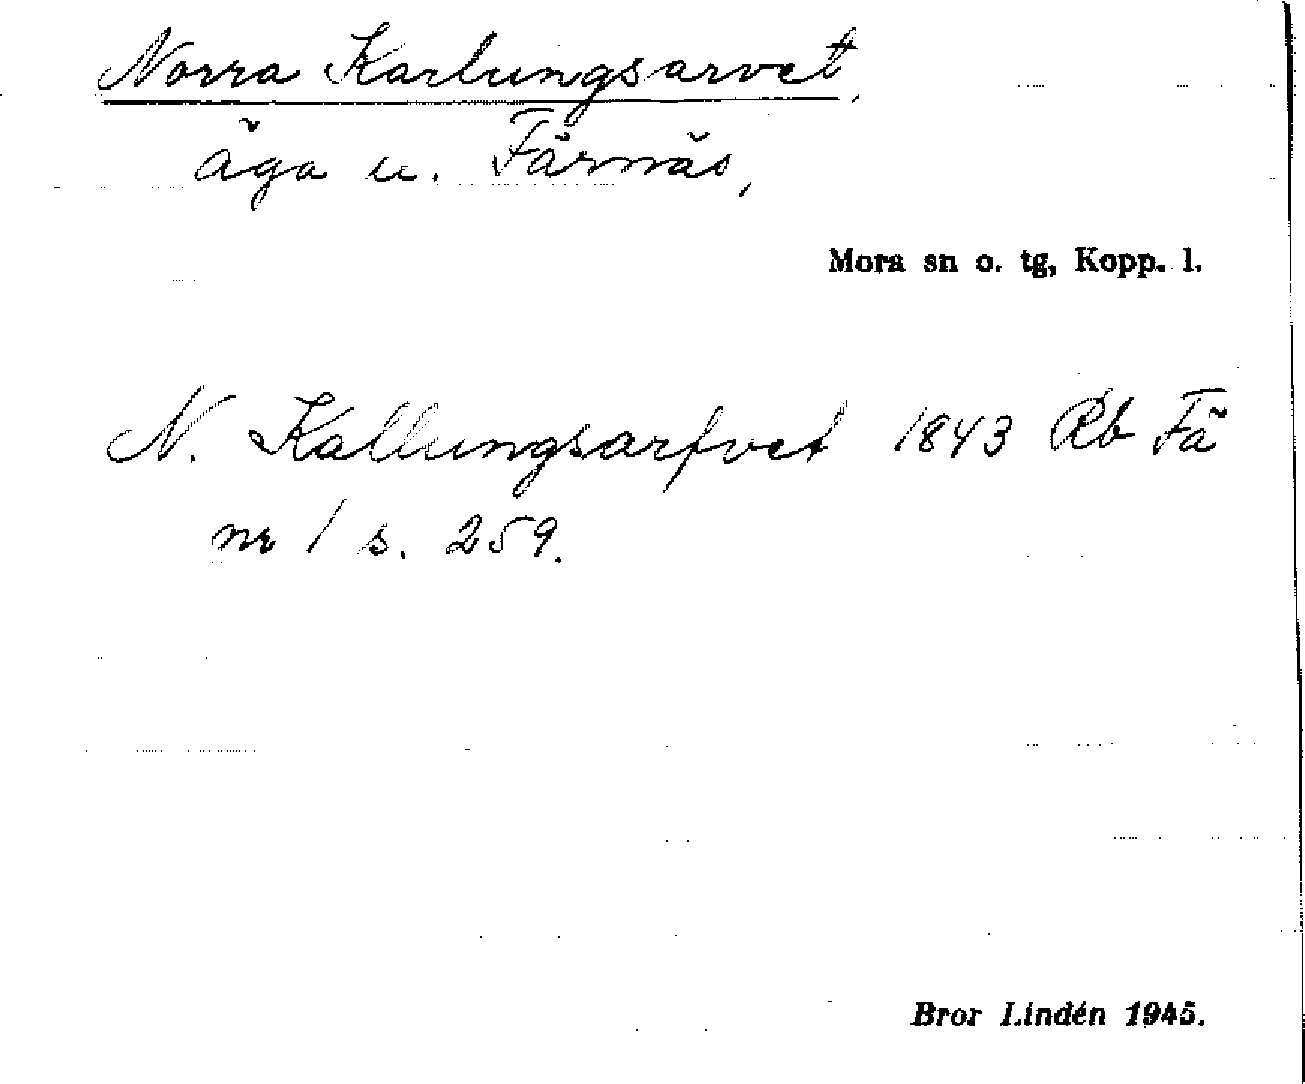 Norra Karlungsarvet,
äga u. Färnäs,
Mora sn o. tg, Kopp. l.
N. Kallungsarfvet 1843 Rb Fä
nr 1 s. 259.
Bror Lindén 1945.